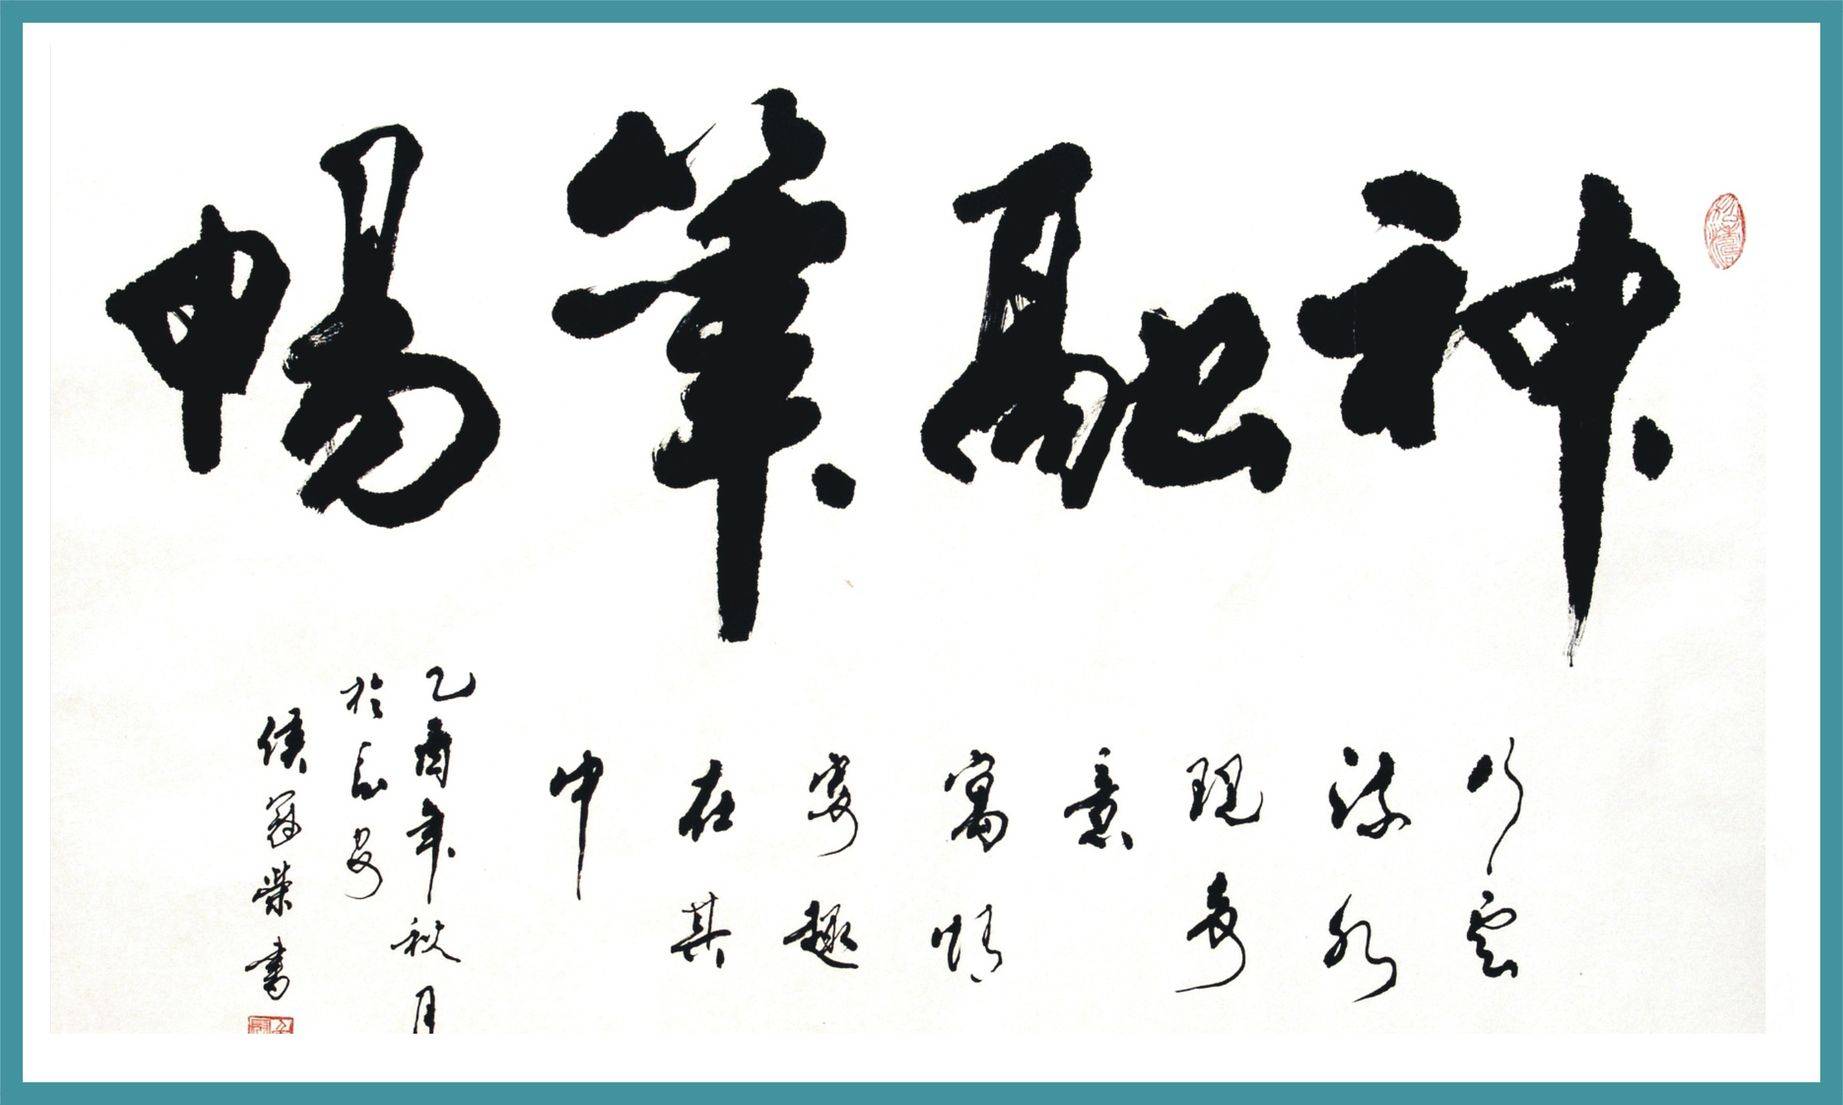 神融筆暢
行雲
流水
現
意
寓情
趣
在其
中
乙酉年秋月
於長安
侯冠榮書